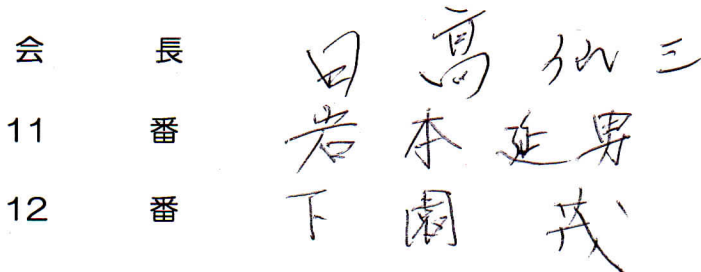 会長 日高仙三
11番 岩本延男
12番 下園茂